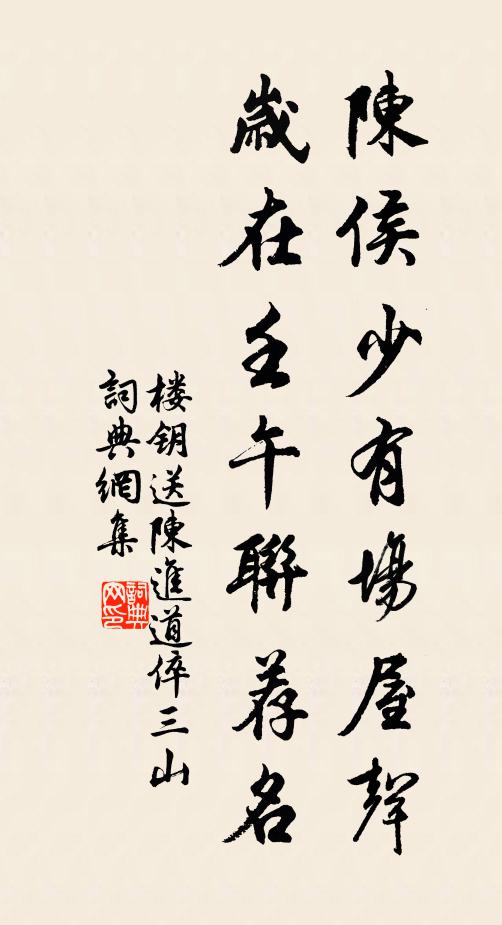 陳侯少有場屋聲
歲在壬午聯荐名
楼钥送陳進道倅三山
詞典網集
詞典網印